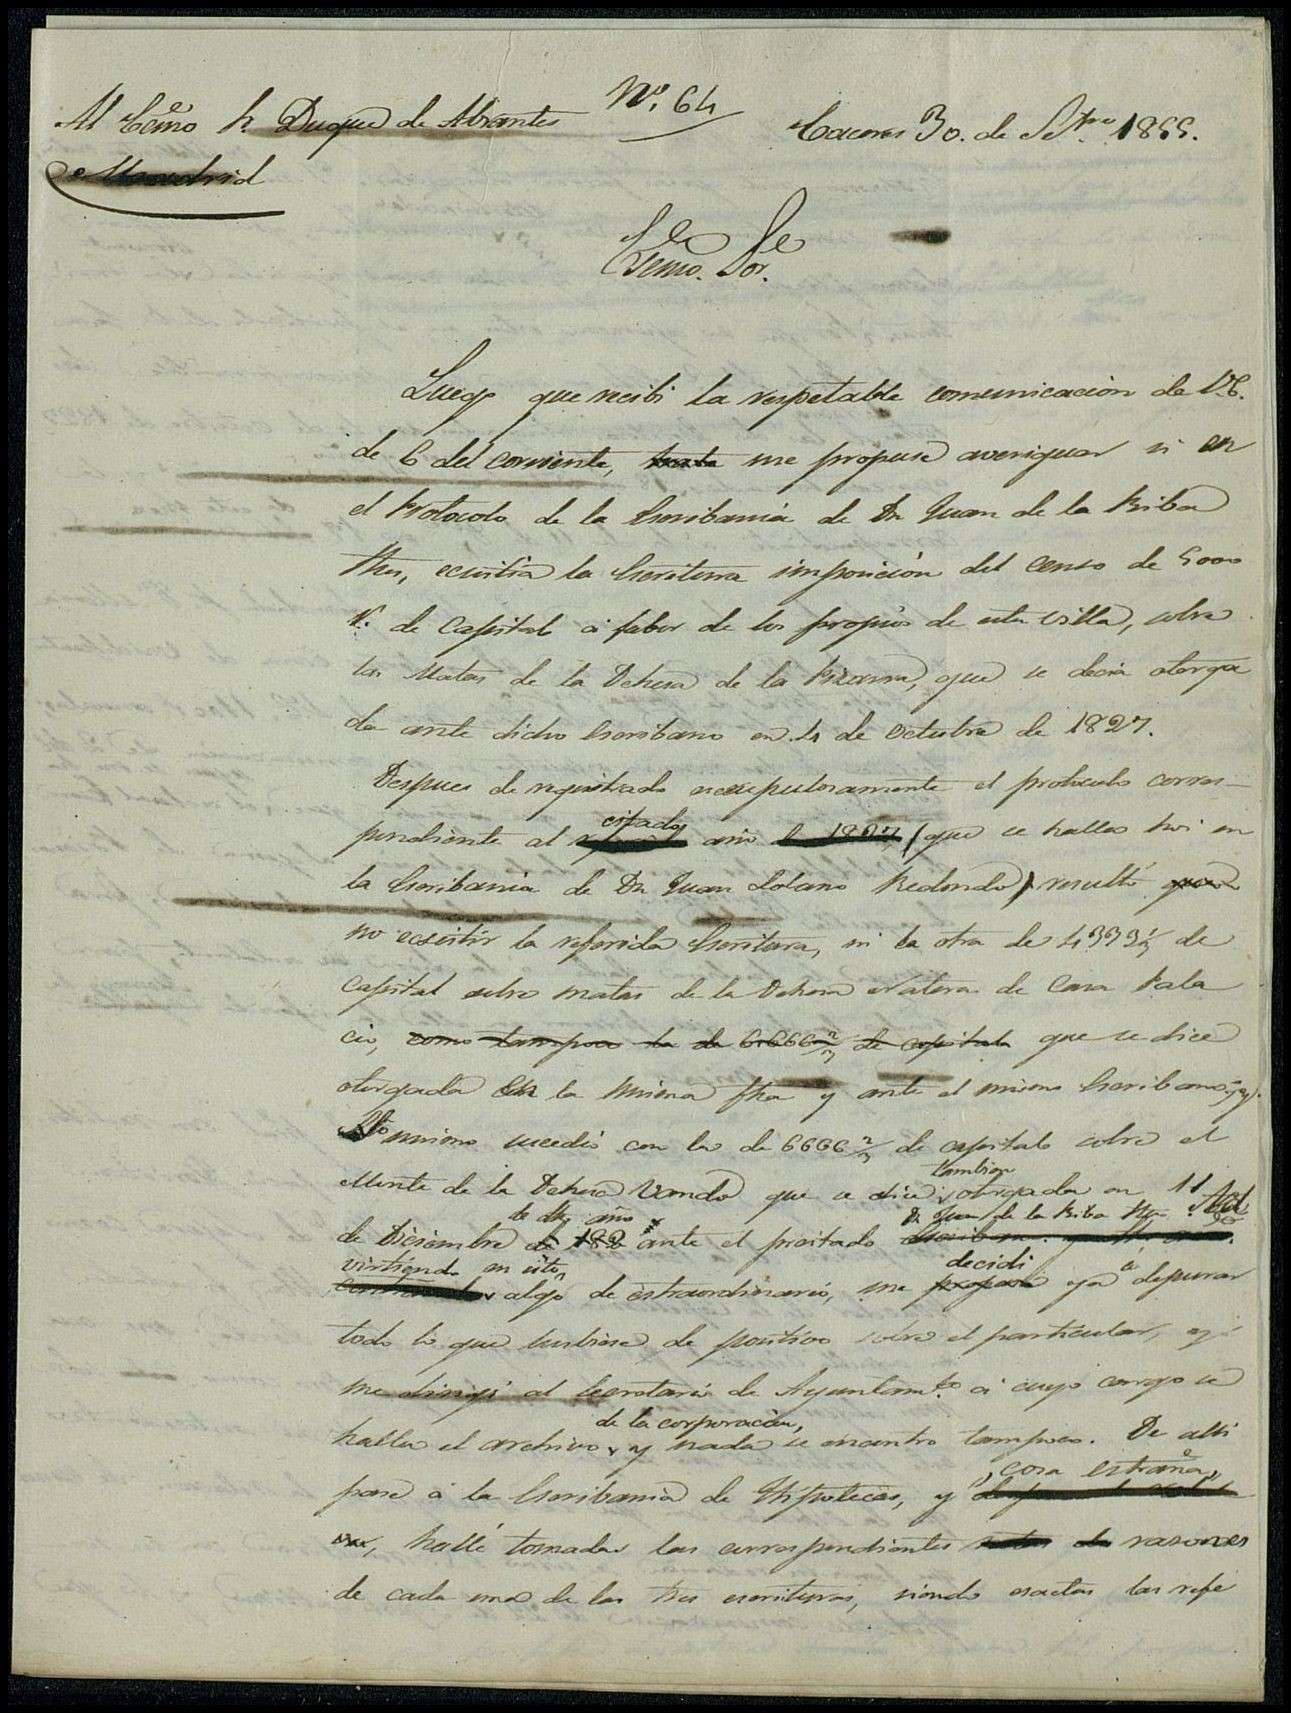 Al Excmo Sr. Duque de Abrantes
Nº. 64
Caceres 30. de Setre. 1855.
Madrid
Excmo. Sor.
Luego que recibi la respetable comunicacion de V.E.
de 6 del corriente, me propuse averiguar si en
el Protocolo de la Escribania de Dn Juan de la Riba
ecsistia la Escritura imposicion del censo de 5000
rs. de Capital á fabor de los propios de esta villa, sobre
las Matas de la Dehesa de la Pizarra, que se decia otorga
da ante dicho Escribano en 4 de Octubre de 1827.
Despues de registrado escrupulosamente el protocolo corres-
citado
pondiente al año de 1827 (que se halla hoi en
la Escribania de Dn Juan Solano Redondo) resultó que
no ecsistir la referida Escritura, ni la otra de 4333⅓ de
Capital sobre matas de la Dehesa Natera de Casa Pala
cio, como tampoco la de 6.666⅔ de capital que se dice
otorgada en la misma fha y ante el mismo Escribano; y
lo mismo sucedió con la de 6666⅔ de capital sobre el
tambien
Monte de la Dehesa que se dice otorgada en 11
de dho año Dn Juan de la Riba Ad
de Diciembre de 182 ante el precitado
virtiendo en esto decidi á
algo de estraordinario, me propuse ya depurar
todo lo que hubiese de positivo sobre el particular, y
me dirigi al Secretario de Ayuntamto. á cuyo cargo se
de la corporacion,
halla el archivo y nada se encontro tampoco. De alli
cosa estraña,
pasé á la Escribania de Hipotecas, y
hallé tomadas las correspondientes razones
de cada una de las tres escrituras, siendo esactas las refe